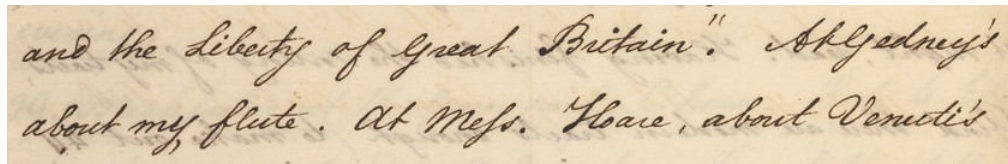 and the Liberty of Great Britain". At Gedney's
about my flute. At Mess. Hoare, about Venuti's